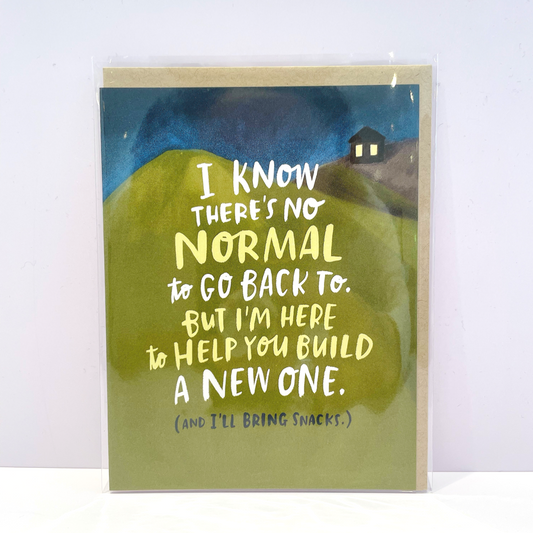 I KNOW
THERE'S NO
NORMAL
to GO BACK TO.
BUT I'M HERE
to HELP YOU BUILD
A NEW ONE.
(AND I'LL BRING SNACKS.)